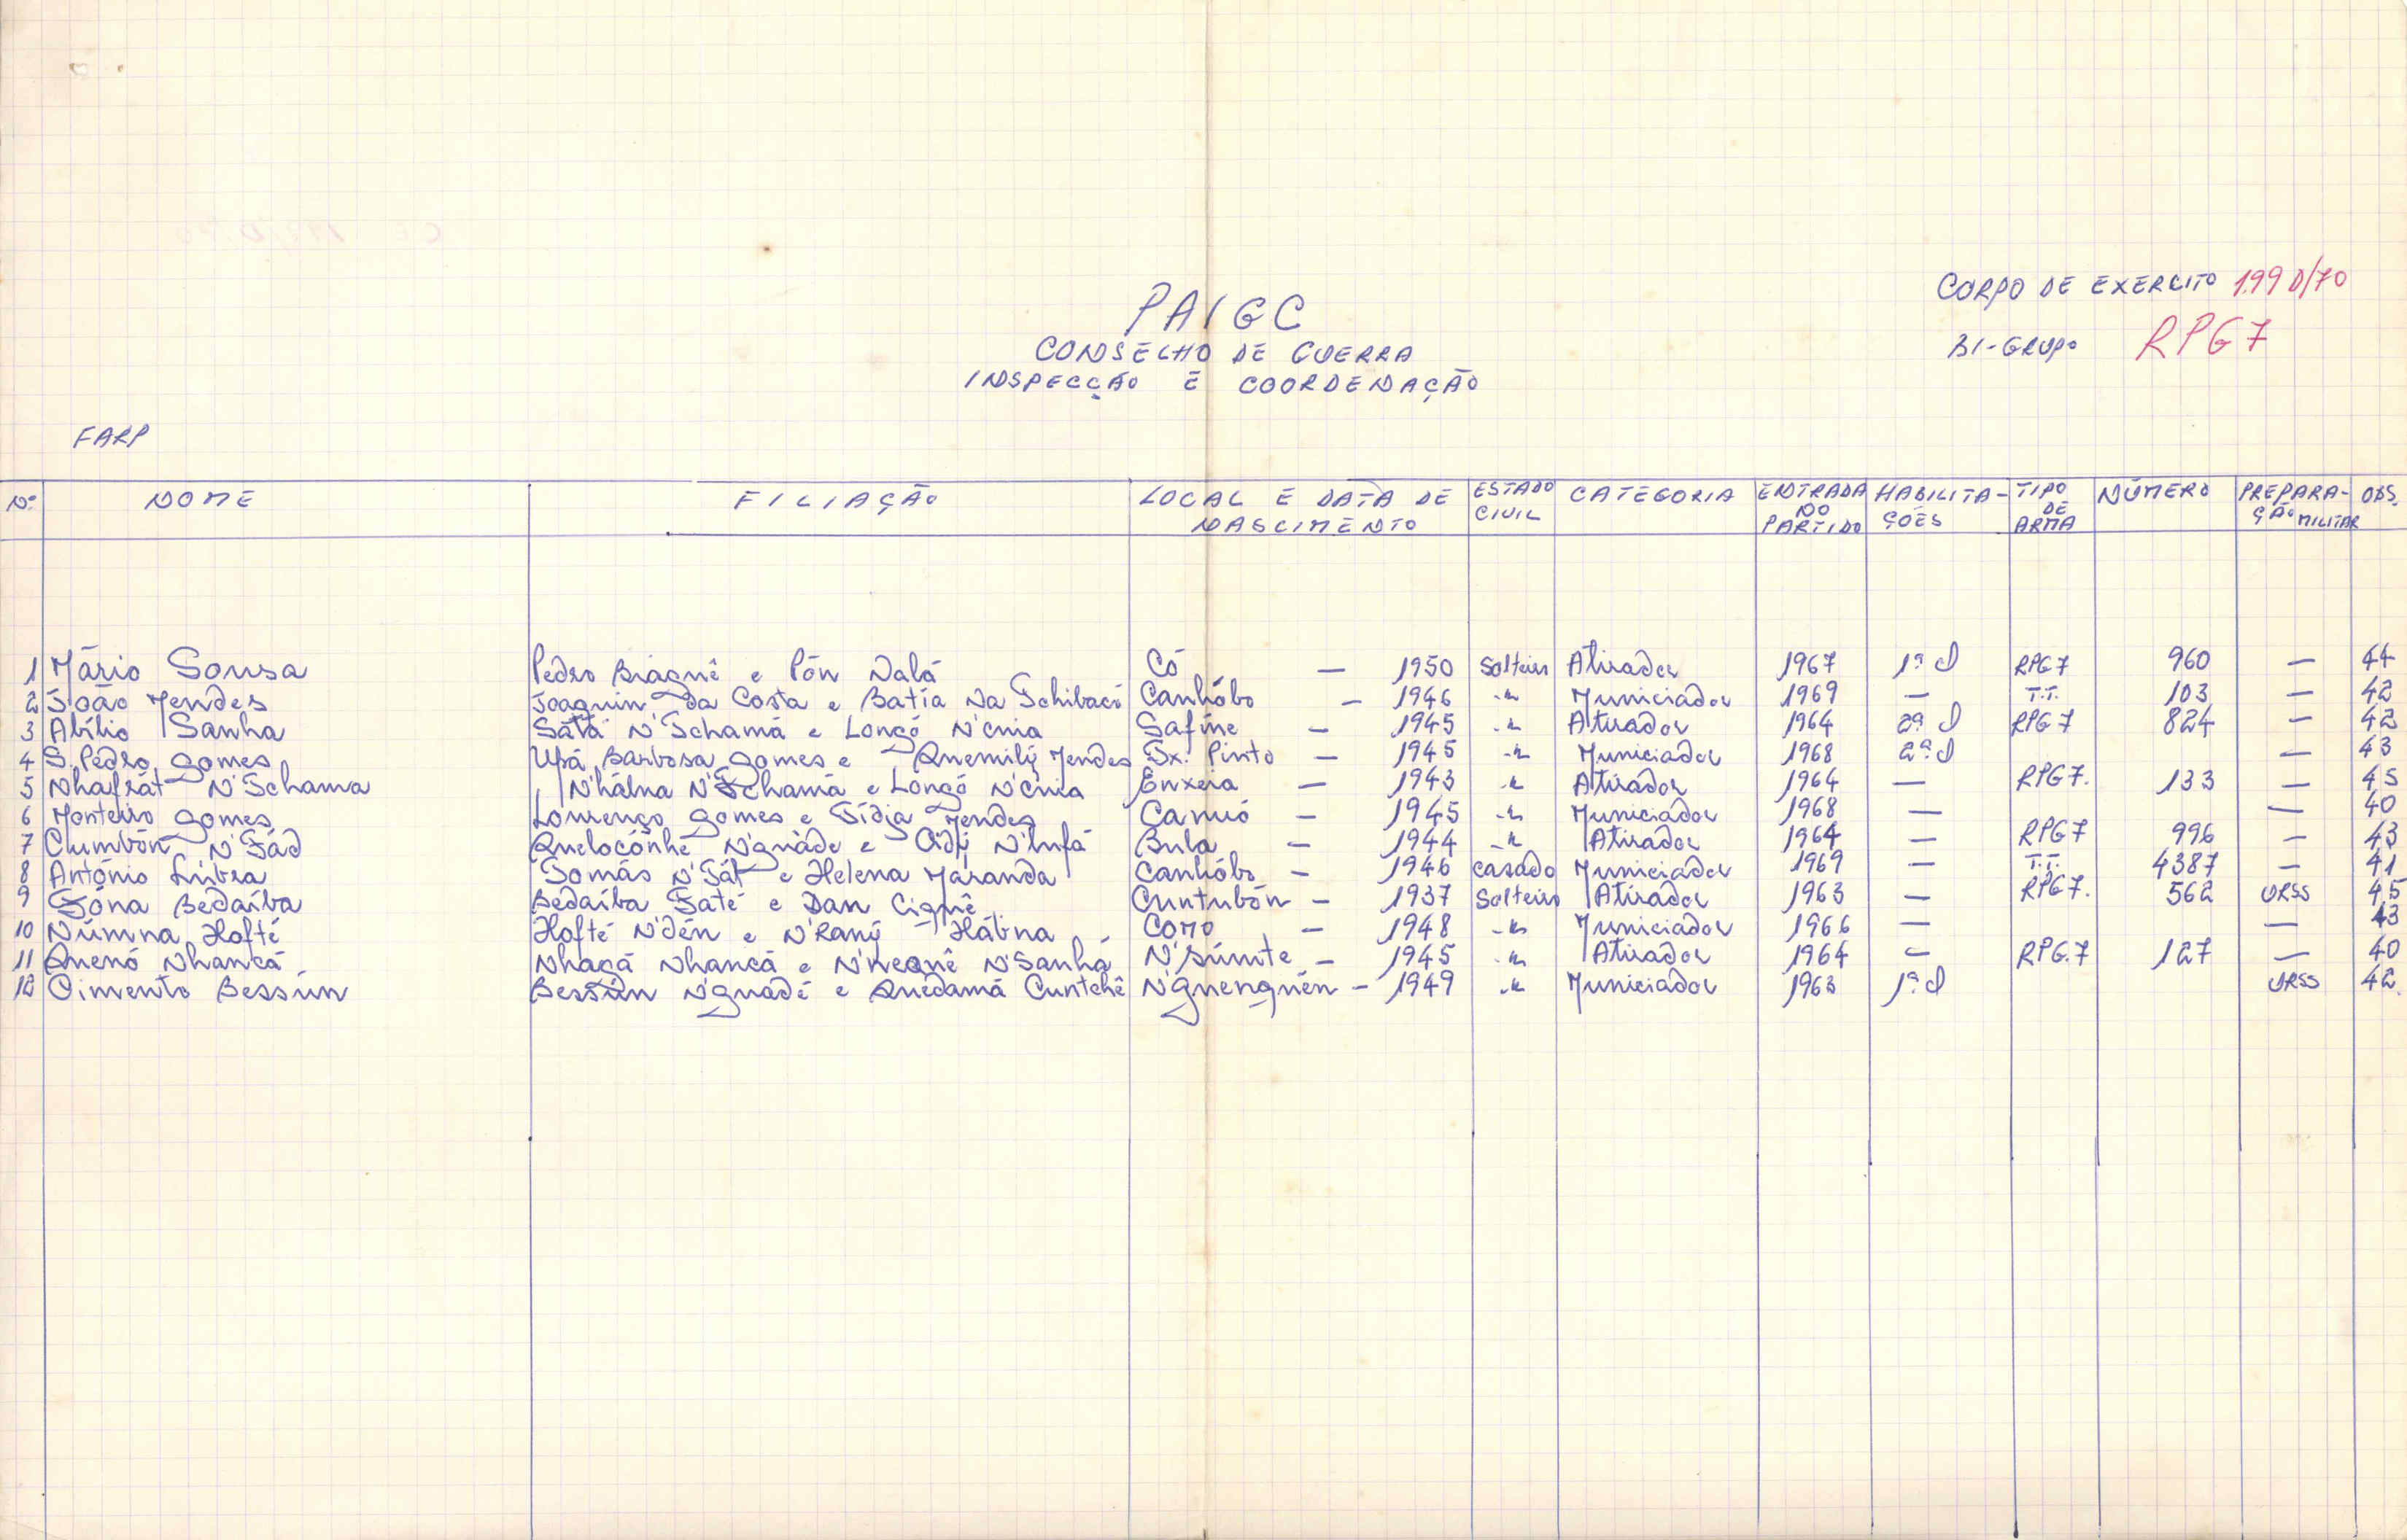 CORPO DE EXERCITO 199 D/70
PAIGC
BI-GRUPO RPG7
CONSELHO DE GUERRA
INSPECÇÃO E COORDENAÇÃO
FARP
Nº NOME FILIAÇÃO LOCAL E DATA DE NASCIMENTO ESTADO CIVIL CATEGORIA ENTRADA NO PARTIDO HABILITAÇÕES TIPO DE ARMA NÚMERO PREPARAÇÃO MILITAR OBS.
1 Mário Sousa Pedro Biaguê e Pón Nalá Có — 1950 Solteiro Atirador 1967 1ª cl RPG7 960 — 44
2 João Mendes Joaquin da Costa e Batía Na Tchibacó Canhóbo — 1946 -"- Municiador 1969 — T.T. 103 — 42
3 Abílio Sanha Satá N'Tchamá e Longó N'cnia Safíne — 1945 -"- Atirador 1964 2ª cl RPG7 824 — 42
4 S. Pedro Gomes Upá Barbosa Gomes e Quemilý Mendes Tx. Pinto — 1945 -"- Municiador 1968 2ª cl — 43
5 Nhafrát N'Tchama N'hálna N'Tchamá e Longó N'cnia Enxeia — 1943 -"- Atirador 1964 — RPG7. 133 — 45
6 Monteiro Gomes Lourenço Gomes e Tídja Mendes Camió — 1945 -"- Municiador 1968 — — 40
7 Clumbón N'Fád Quelocónhe N'guàde e N'lufá Bula — 1944 -"- Atirador 1964 — RPG7 996 — 43
8 António Tomás N'Fát e Helena Maranda Canhóbo — 1946 casado Municiador 1969 — T.T. 4387 — 41
9 Fóna Bedaíba Bedaíba Faté e Dan Ciguê Cuntubón — 1937 Solteiro Atirador 1963 — RPG7. 562 URSS 45
10 Númna Hofté Hofté N'dén e N'Raný Hábna Como — 1948 -"- Municiador 1966 — — 43
11 Quenó Nhancá Nhagá Nhancá e N'nequê N'Sanhá N'súnte — 1945 -"- Atirador 1964 — RPG.7 127 — 40
12 Cimento Bessún Bessún N'guadé e Quedamá Cuntchê N'guenguén — 1949 -"- Municiador 1963 1ª cl URSS 42.